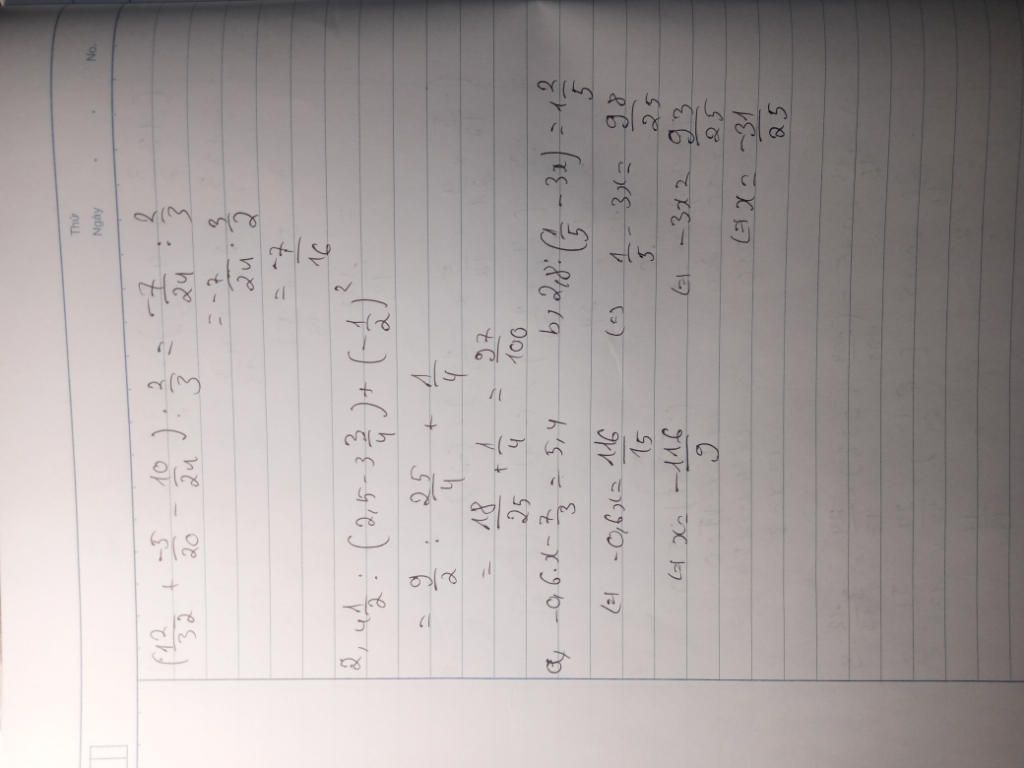 Thứ
Ngày
No.
(12/32 + -5/20 - 10/24) : 2/3 = -7/24 : 2/3
= -7/24 . 3/2
= -7/16
2, 4 1/2 : (2,5 - 3 3/4) + (-1/2)²
= 9/2 : 25/4 + 1/4
= 18/25 + 1/4 = 97/100
a, -0,6.x - 7/3 = 5,4 b, 2,8 : (1/5 - 3x) = 1 2/5
(=) -0,6x = 116/15 (=) 1/5 - 3x = 98/25
(=) x = -116/9 (=) -3x = 93/25
(=) x = -31/25